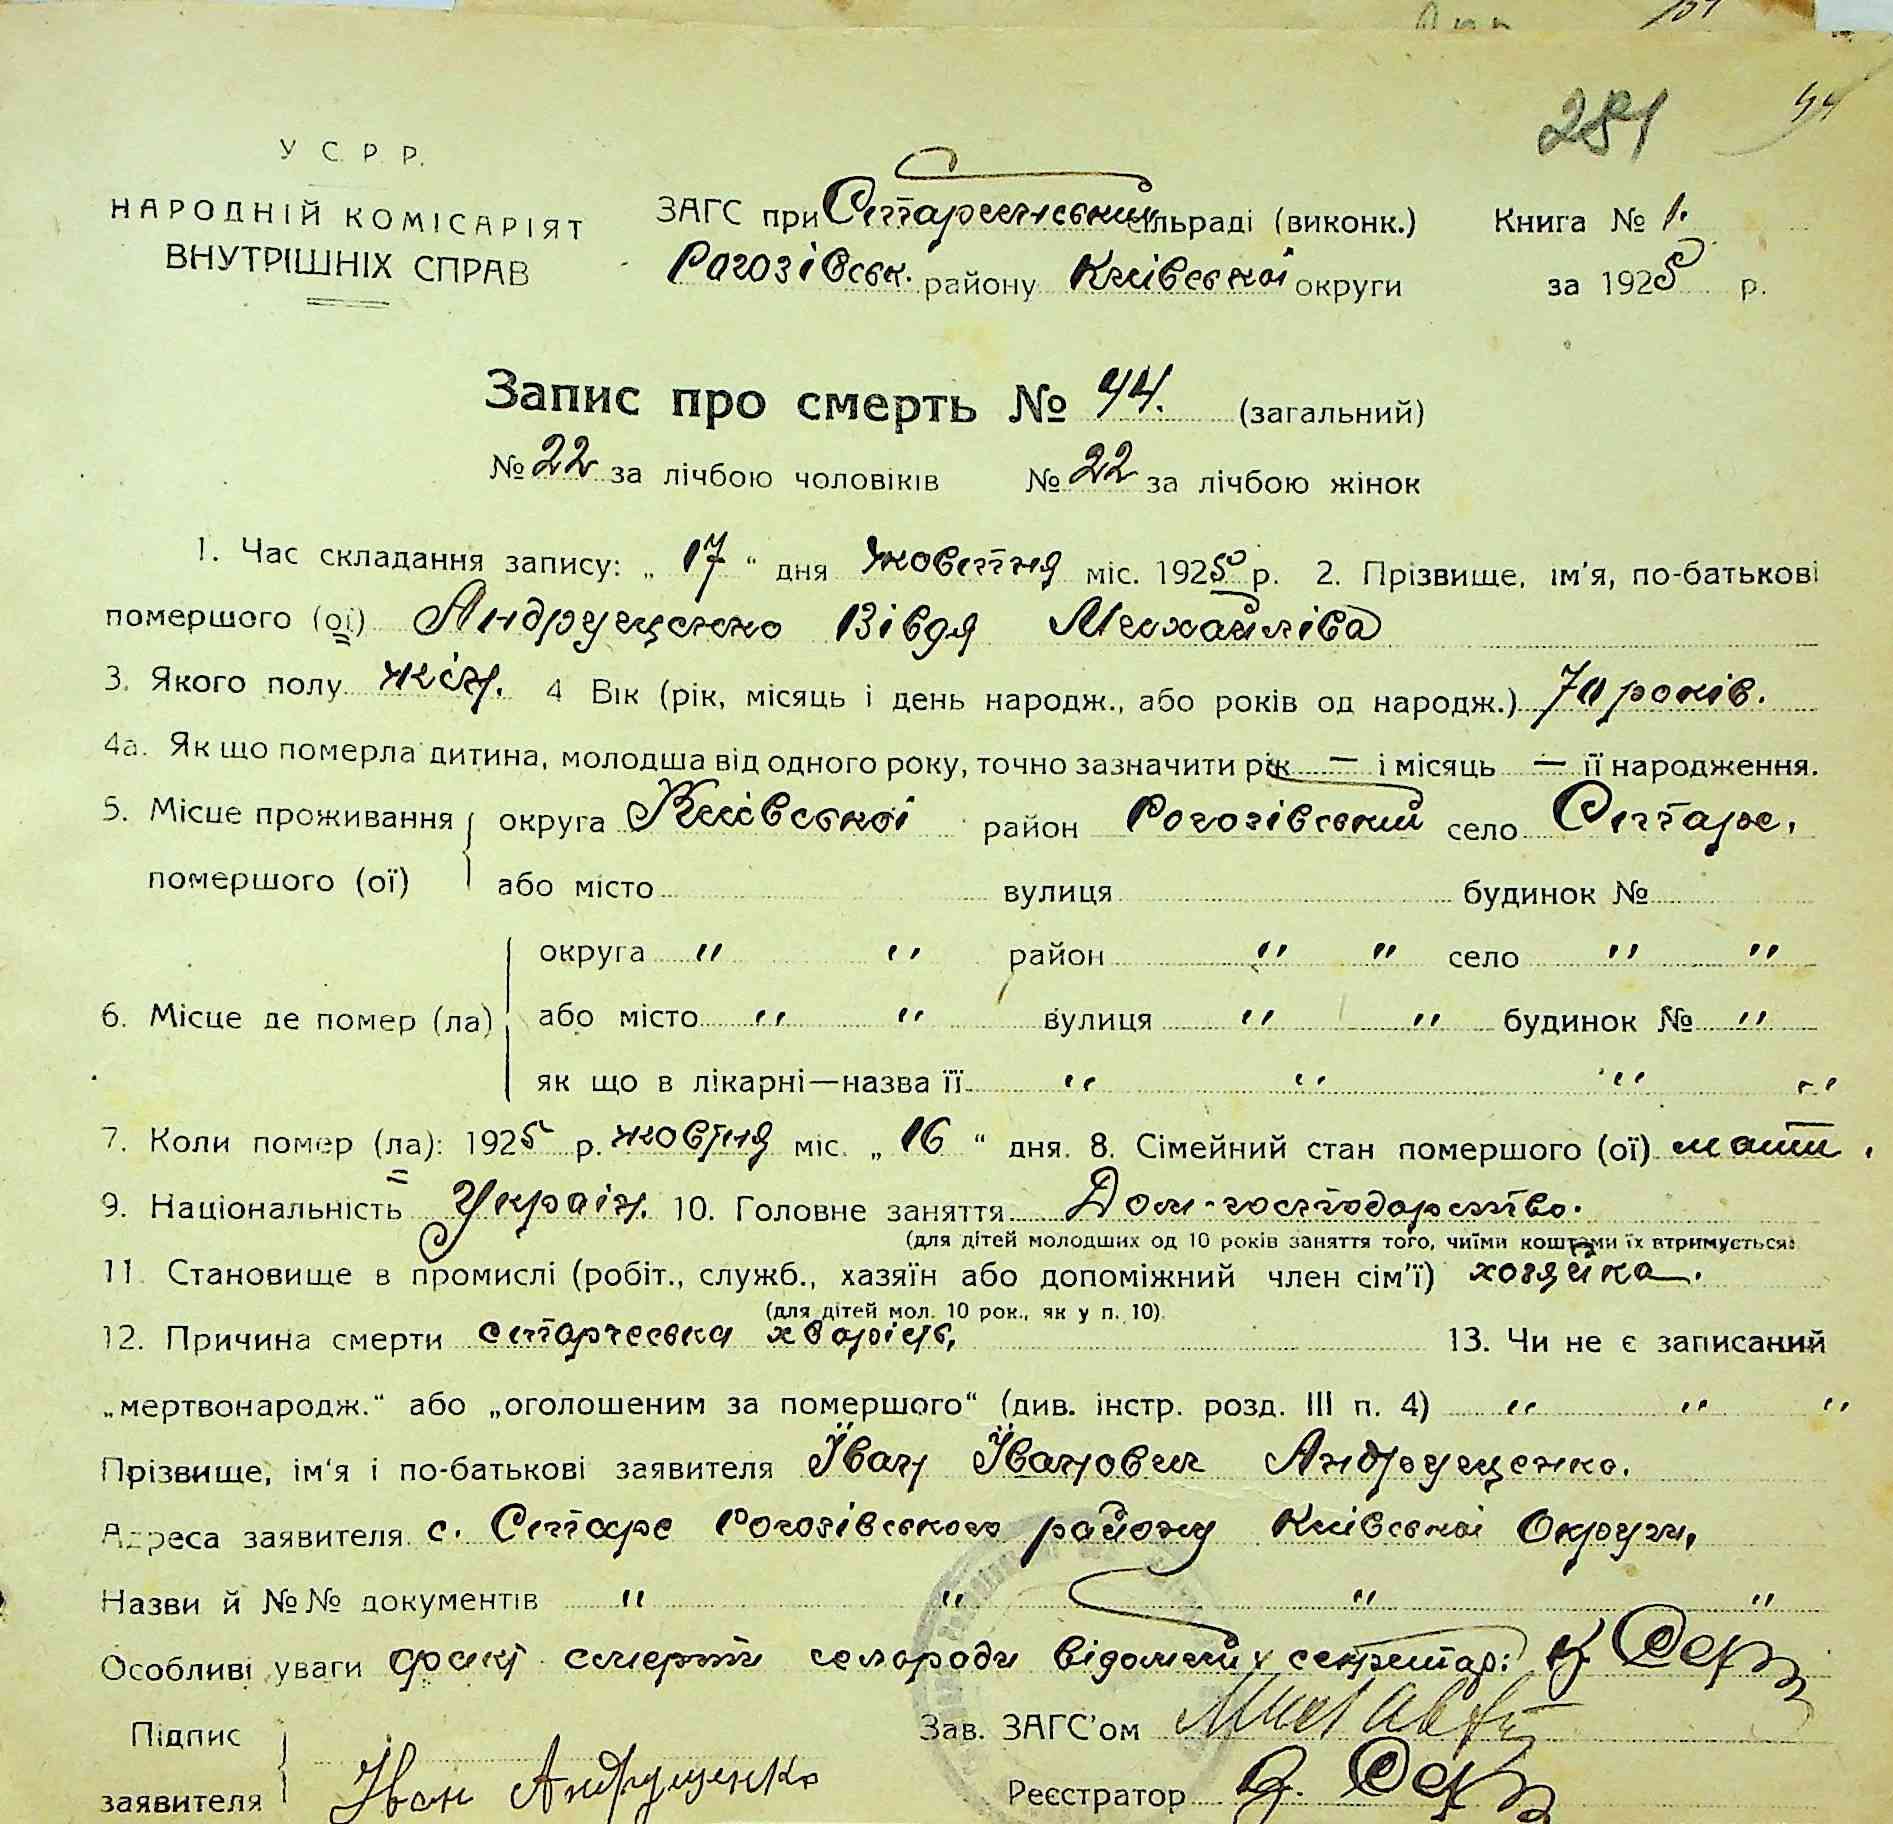 281 44
У С. Р. Р.
НАРОДНІЙ КОМІСАРІЯТ
ВНУТРІШНІХ СПРАВ
ЗАГС при Старинській сільраді (виконк.) Книга № 1.
Рогозівськ. району Київської округи за 1925 р.
Запис про смерть № 44. (загальний)
№ 22 за лічбою чоловіків № 22 за лічбою жінок
1. Час складання запису: „ 17 “ дня жовтня міс. 1925 р. 2. Прізвище, ім'я, по-батькові
помершого (ої) Андрущенко Вівдя Михайліва
3. Якого полу жін. 4 Вік (рік, місяць і день народж., або років од народж.) 70 років.
4а. Як що померла дитина, молодша від одного року, точно зазначити рік — і місяць — її народження.
5. Місце проживання округа Київської район Рогозівський село Старе.
помершого (ої) або місто вулиця будинок №
округа " " район " " село " "
6. Місце де помер (ла) або місто " " вулиця " " будинок № "
як що в лікарні—назва її " " " "
7. Коли помер (ла): 1925 р. жовтня міс. „ 16 “ дня. 8. Сімейний стан помершого (ої) мати.
9. Національність Україн. 10. Головне заняття Дом-господарство.
(для дітей молодших од 10 років заняття того, чиїми коштами їх втримується)
11. Становище в промислі (робіт., служб., хазяїн або допоміжний член сім'ї) хозяйка.
(для дітей мол. 10 рок., як у п. 10).
12. Причина смерти старческа хворість, 13. Чи не є записаний
„мертвонародж.“ або „оголошеним за помершого“ (див. інстр. розд. III п. 4) " " "
Прізвище, ім'я і по-батькові заявителя Їван Їванович Андрущенко.
Адреса заявителя с. Старе Рогозівського району Київської Округи,
Назви й №№ документів " " " "
Особливі уваги факт смерти сельради відомий секретар:
Підпис Зав. ЗАГС'ом
заявителя Іван Андрущенко Реєстратор